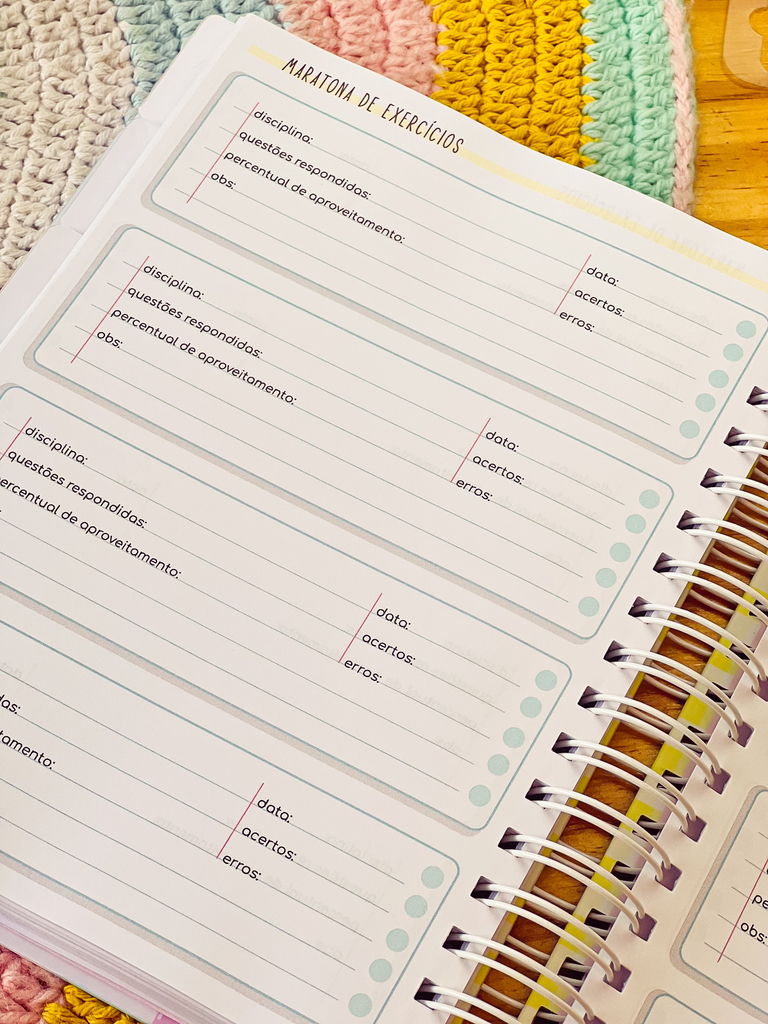 MARATONA DE EXERCÍCIOS
disciplina:
questões respondidas:
percentual de aproveitamento:
obs:
data:
acertos:
erros:
disciplina:
questões respondidas:
percentual de aproveitamento:
obs:
data:
acertos:
erros:
disciplina:
questões respondidas:
ercentual de aproveitamento:
data:
acertos:
erros:
das:
tamento:
data:
acertos:
erros:
pe
obs: